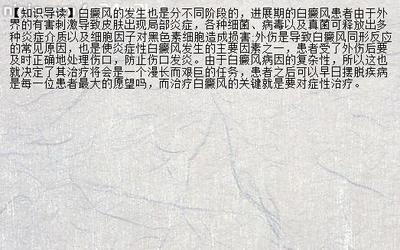 【知识导读】白癜风的发生也是分不同阶段的，进展期的白癜风患者由于外
界的有害刺激导致皮肤出现局部炎症，各种细菌、病毒以及真菌可释放出多
种炎症介质以及细胞因子对黑色素细胞造成损害.外伤是导致白癜风同形反应
的常见原因，也是使炎症性白癜风发生的主要因素之一，患者受了外伤后要
及时正确地处理伤口，防止伤口发炎。由于白癜风病因的复杂性，所以这也
就决定了其治疗将会是一个漫长而艰巨的任务，患者之后可以早日摆脱疾病
是每一位患者最大的愿望吗，而治疗白癜风的关键就是要对症性治疗。